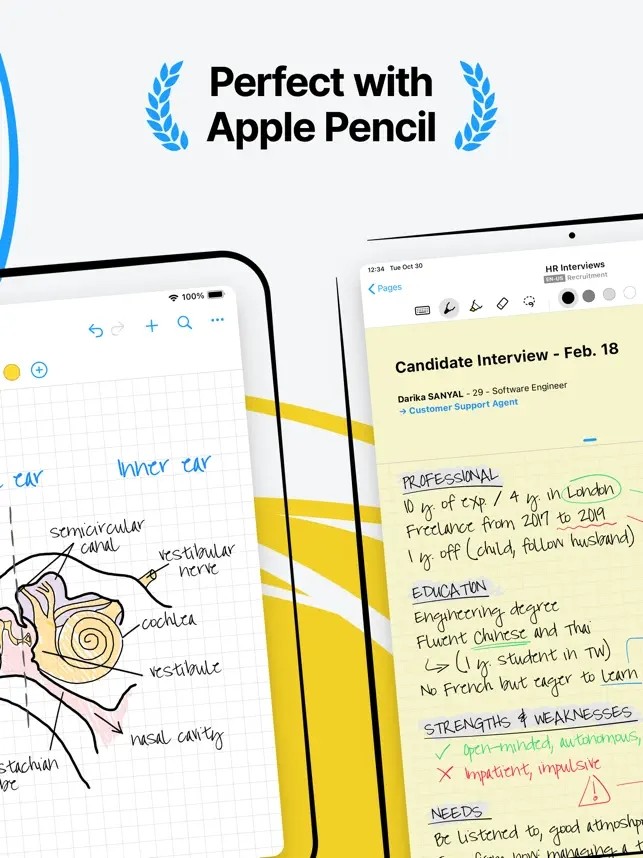 Perfect with
Apple Pencil
100%
ear
Inner ear
semicircular
canal
vestibular
nerve
cochlea
vestibule
nasal cavity
12:34 Tue Oct 30
Pages
HR Interviews
EN-US Recruitment
Candidate Interview - Feb. 18
Darika SANYAL - 29 - Software Engineer
→ Customer Support Agent
PROFESSIONAL
10 y. of exp. / 4 y. in London
Freelance from 2017 to 2019
1 y. off (child, follow husband)
EDUCATION
Engineering degree
Fluent Chinese and Thai
↳ (1 y. student in TW)
No French but eager to learn
STRENGTHS & WEAKNESSES
✓ Open-minded, autonomous,
✗ Impatient, impulsive
NEEDS
Be listened to, good atmosph
how managing a